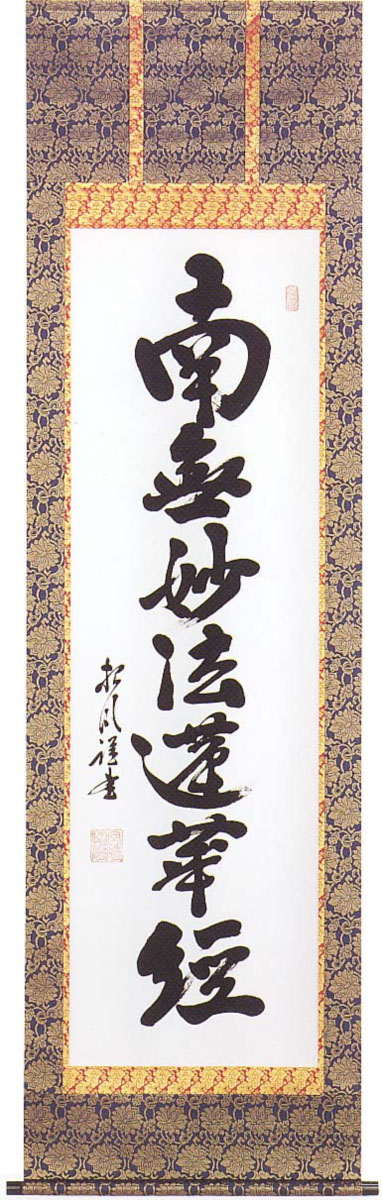 南無妙法蓮華經
松風謹書